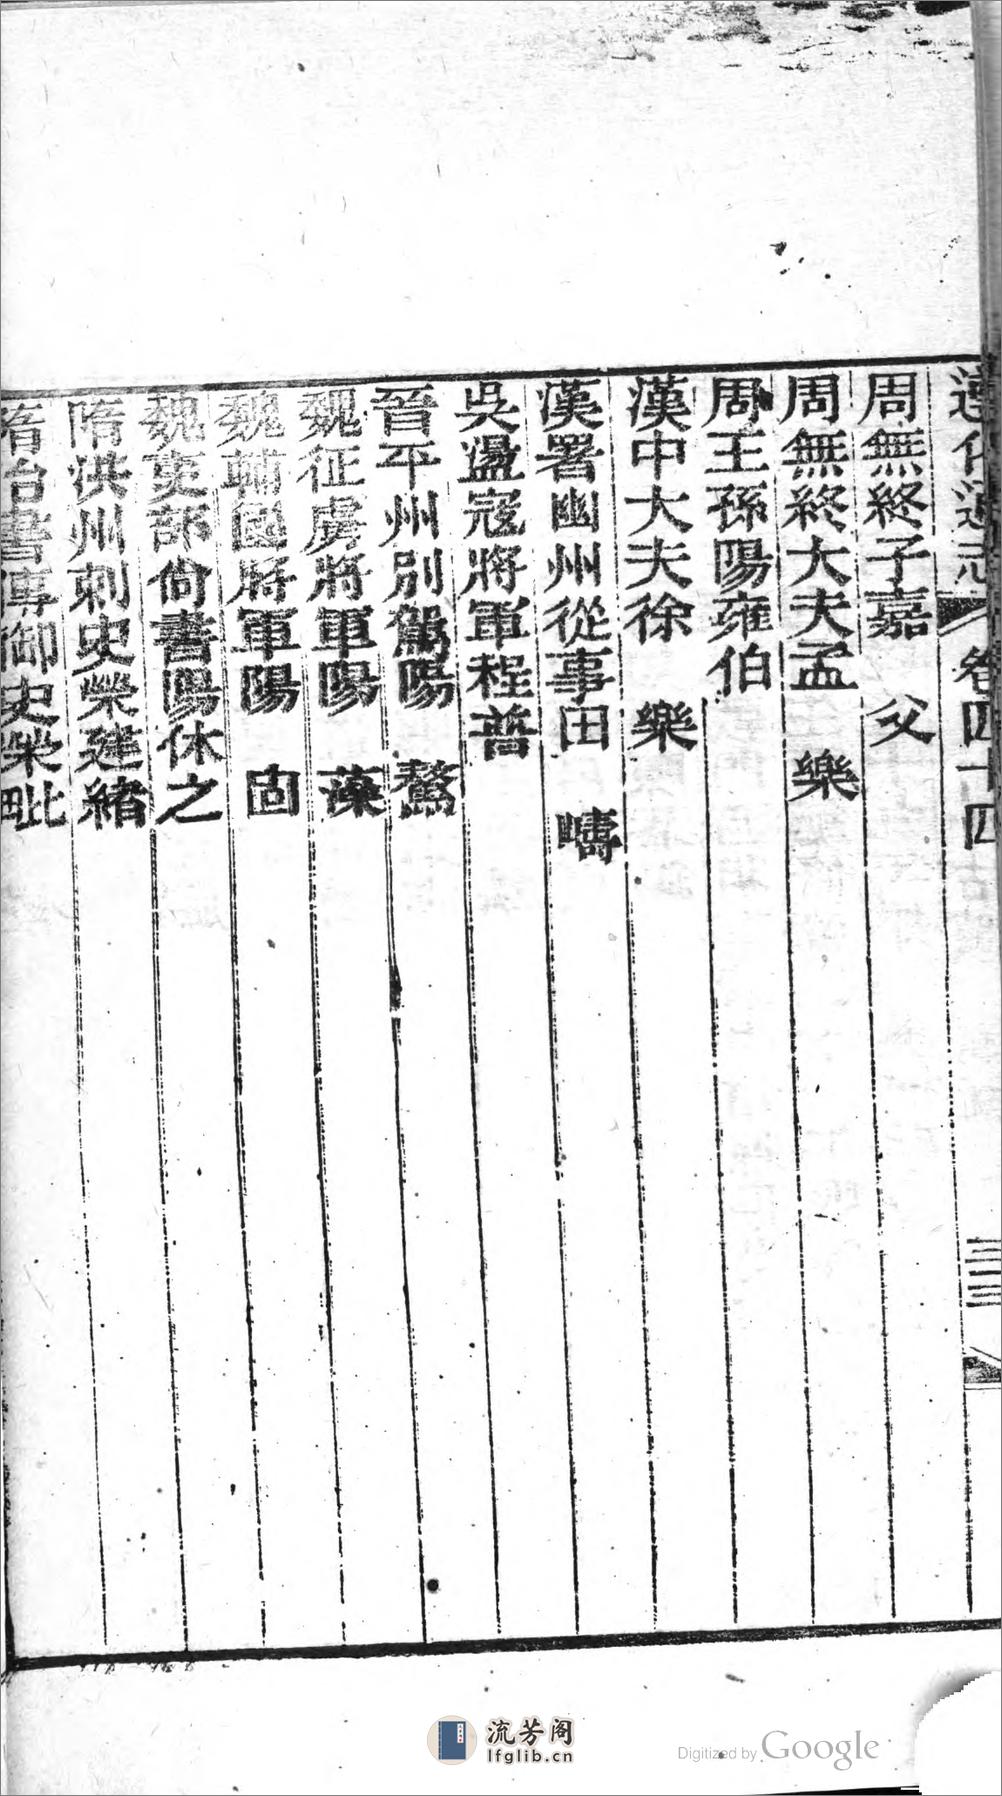 遵化通志 卷四十四 三三
周無終子嘉 父
周無終大夫孟 樂
周王孫陽雍伯
漢中大夫徐 樂
漢署幽州從事田 疇
吳盪寇將軍程普
晉平州別駕陽 鶩
魏征虜將軍陽 藻
魏輔國將軍陽 固
魏吏部尙書陽休之
隋洪州刺史榮建緒
隋治書侍御史榮毗
流芳阁
lfglib.cn
Digitized by Google